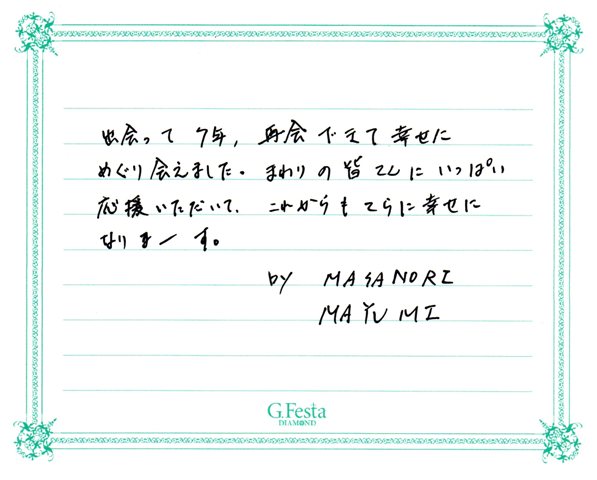 出会って7年，再会できて幸せに
めぐり会えました。まわりの皆さんにいっぱい
応援いただいて、これからもさらに幸せに
なりまーす。
by MASANORI
MAYUMI
G.Festa
DIAMOND